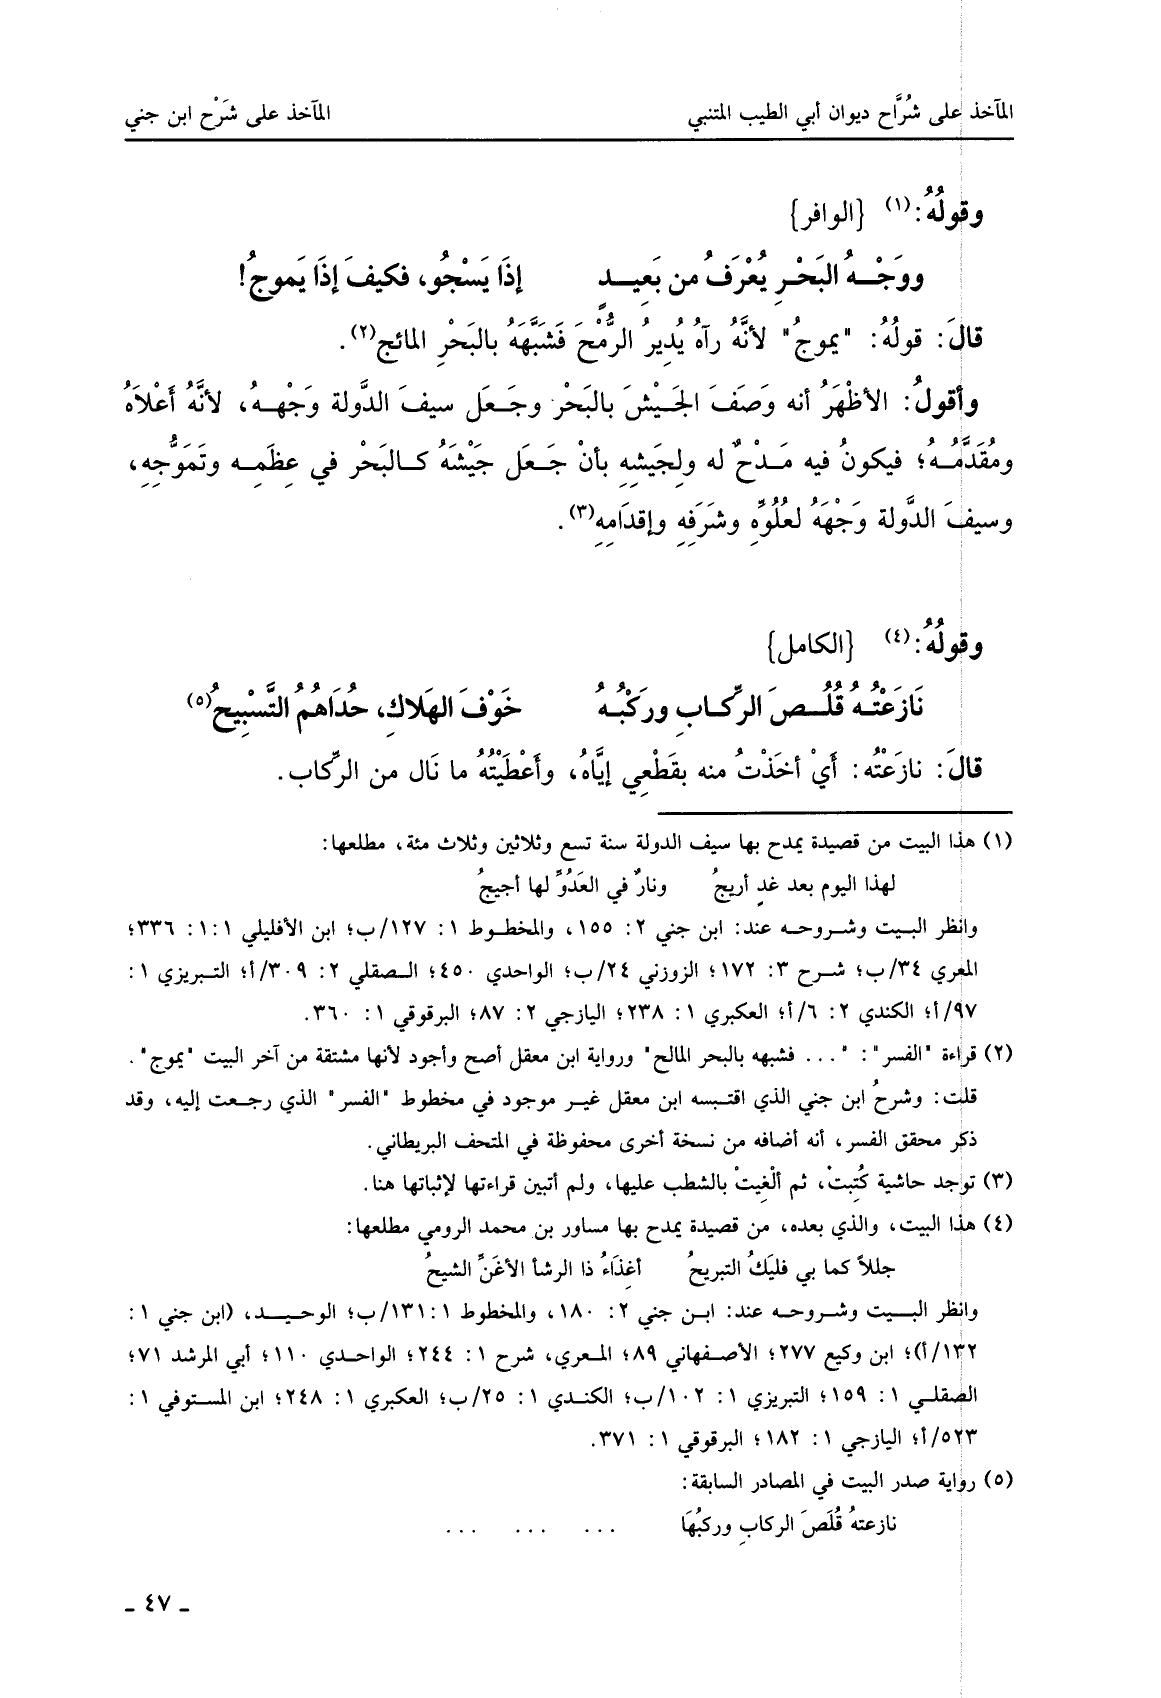 المآخذ على شُرَّاح ديوان أبي الطيب المتنبي المآخذ على شَرْح ابن جني
وقولُهُ:(١) {الوافر}
ووَجْـهُ البَحْرِ يُعْرَفُ من بَعِيـدٍ إذَا يَسْجُو، فكيفَ إذَا يَموجُ!
قالَ: قولُهُ: "يموجُ" لأنَّهُ رآهُ يُدِيرُ الرُّمْحَ فَشَبَّهَهُ بالبَحْرِ المائج(٢).
وأقولُ: الأظْهَرُ أنه وَصَفَ الجَيْشَ بالبَحْرِ وجَعَل سيفَ الدَّولة وَجْهـهُ، لأنَّهُ أَعْلاَه
ومُقَدَّمُـهُ؛ فيكونُ فيه مَـدْحٌ له ولِجَيشِهِ بأنْ جَـعَل جَيْشَهُ كـالبَحْر في عِظَمِـه وتَمَوُّجِهِ،
وسيفَ الدَّولة وَجْهَهُ لعُلُوِّهِ وشَرَفِهِ وإقدَامِهِ(٣).
وقولُهُ:(٤) {الكامل}
نَازَعْتُـهُ قُلُـصَ الرِّكـابِ ورَكْبُـهُ خَوْفَ الهَلاكِ، حُدَاهُمُ التَّسْبِيحُ(٥)
قالَ: نازَعْتُه: أَيْ أخَذْتُ منه بقَطْعِي إيَّاهُ، وأَعْطَيْتُهُ ما نَال من الرِّكاب.
(١) هذا البيت من قصيدة يمدح بها سيف الدولة سنة تسع وثلاثين وثلاث مئة، مطلعها:
لهذا اليوم بعد غدٍ أريجُ ونارٌ في العَدُوِّ لها أجيجُ
وانظر البـيت وشـروحـه عند: ابن جني ٢: ١٥٥، والمخطـوط ١: ١٢٧/ب؛ ابن الأفليلي ١:١: ٣٣٦؛
المعري ٣٤/ب؛ شـرح ٣: ١٧٢؛ الزوزني ٢٤/ب؛ الواحدي ٤٥٠؛ الـصقلي ٢: ٣٠٩/أ؛ التـبريزي ١:
٩٧/أ؛ الكندي ٢: ٦/أ؛ العكبري ١: ٢٣٨؛ اليازجي ٢: ٨٧؛ البرقوقي ١: ٣٦٠.
(٢) قراءة "الفسر": "... فشبهه بالبحر المالح" ورواية ابن معقل أصح وأجود لأنها مشتقة من آخر البيت "يموج".
قلت: وشرحُ ابن جني الذي اقتـبسه ابن معقل غيـر موجود في مخطوط "الفسر" الذي رجـعت إليه، وقد
ذكر محقق الفسر، أنه أضافه من نسخة أخرى محفوظة في المتحف البريطاني.
(٣) توجد حاشية كُتِبتْ، ثم ألْغِيتْ بالشطب عليها، ولم أتبين قراءتها لإثباتها هنا.
(٤) هذا البيت، والذي بعده، من قصيدة يمدح بها مساور بن محمد الرومي مطلعها:
جللاً كما بي فليَكُ التبريحُ أغِذَاءُ ذا الرشأ الأغَنِّ الشيحُ
وانظر البـــيت وشـروحـه عند: ابـن جني ٢: ١٨٠، والمخطوط ١٣١:١/ب؛ الوحـيــد، (ابن جني ١:
١٣٢/أ)؛ ابن وكيع ٢٧٧؛ الأصـفهاني ٨٩؛ المـعري، شرح ١: ٢٤٤؛ الواحـدي ١١٠؛ أبي المرشد ٧١؛
الصقلـي ١: ١٥٩؛ التبريزي ١: ١٠٢/ب؛ الكنـدي ١: ٢٥/ب؛ العكبري ١: ٢٤٨؛ ابن المسـتوفي ١:
٥٢٣/أ؛ اليازجي ١: ١٨٢؛ البرقوقي ١: ٣٧١.
(٥) رواية صدر البيت في المصادر السابقة:
نازعتهُ قُلَصَ الركابِ وركبُهَا ... ... ...
ـ ٤٧ ـ